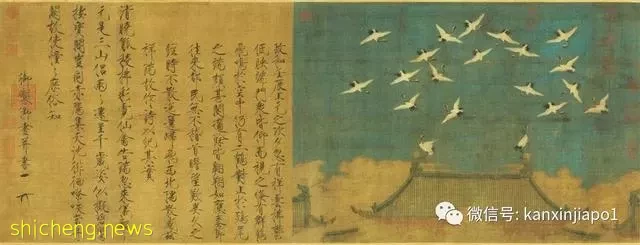 政和壬辰上元之次夕忽有祥雲拂鬱
低映端門衆皆仰而視之倏有群鶴
飛鳴於空中仍有二鶴對止於鴟尾
之端頗甚閒適餘皆翱翔如應奏節
往來都民無不稽首瞻望歎異久之
經時不散迤邐歸飛西北隅散感茲
祥瑞故作詩以紀其實
清曉觚稜拂彩霓仙禽告瑞忽來儀飄飄
元是三山侶兩兩還呈千歲姿似擬碧鸞
棲寶閣豈同赤鴈集天池徘徊嘹唳當丹
闕故使憧憧庶俗知
御製御畫并書
shicheng.news
微信号: kanxinjiapo1